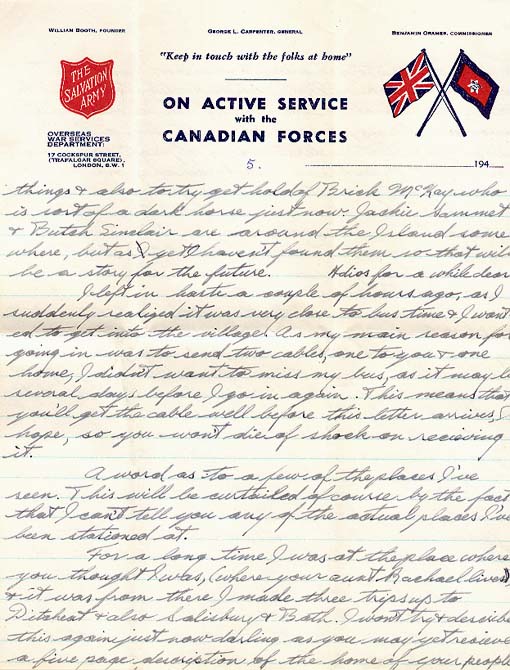 WILLIAM BOOTH, FOUNDER
GEORGE L. CARPENTER, GENERAL
BENJAMIN ORAMES, COMMISSIONER
"Keep in touch with the folks at home"
THE
SALVATION
ARMY
ON ACTIVE SERVICE
with the
CANADIAN FORCES
OVERSEAS
WAR SERVICES
DEPARTMENT:
17 COCKSPUR STREET,
(TRAFALGAR SQUARE),
LONDON, S.W.1
5.
194
things & also to try get hold of Brick McKay who
is sort of a dark horse just now. Jackie Hammet
& Butch Sinclair are around the Island some
where, but as I yet haven't found them so that will
be a story for the future. Adios for a while dear
I left in haste a couple of hours ago, as I
suddenly realized it was very close to bus time & I want
ed to get into the village. As my main reason for
going in was to send two cables, one to you & one
home, I didn't want to miss my bus, as it may be
several days before I go in again. This means that
you'll get the cable well before this letter arrives, I
hope, so you won't die of shock on recieving
it.
A word as to a few of the places I've
seen. This will be curtailed of course by the fact
that I can't tell you any of the actual places I've
been stationed at.
For a long time I was at the place where
you thought I was, (where your aunt Rachael lives)
& it was from there I made three trips up to
Ditcheat & also Salisbury & Bath. I won't try & describe
this again just now darling as you may yet recieve
a five page description of the home of your people